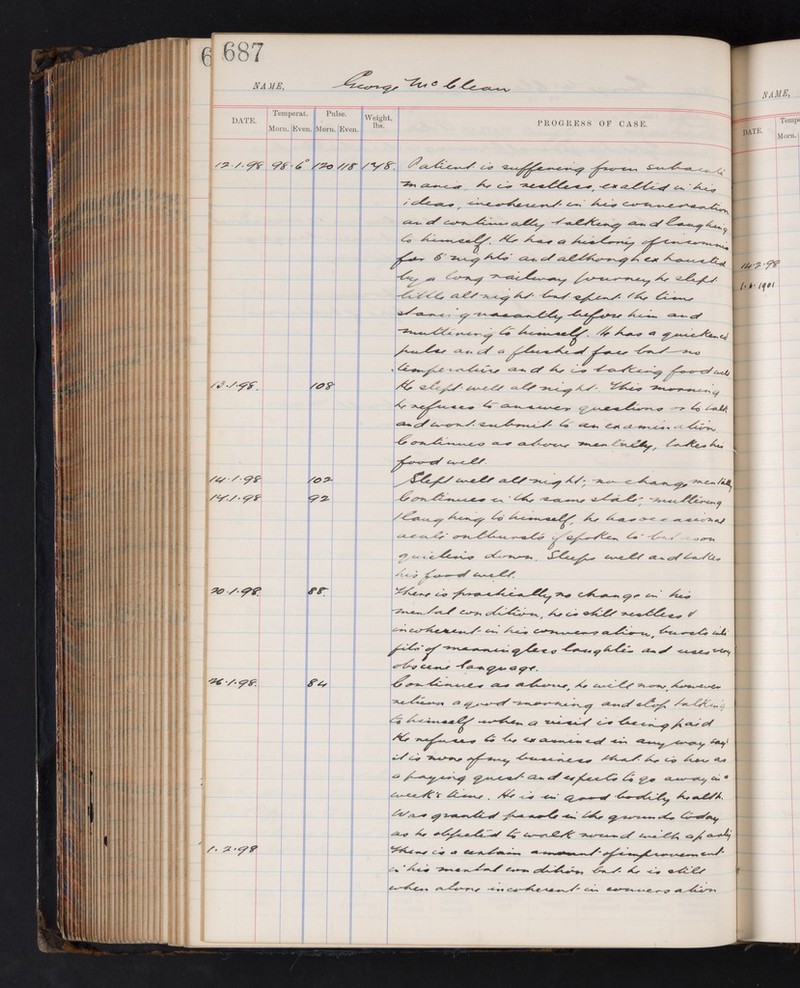 687
NAME, George McClean
DATE. Temperat. Pulse. Weight, lbs. PROGRESS OF CASE.
Morn. Even. Morn. Even.
12.1.98 98.6° 120 118 148. Patient is suffering from subacute
mania. he is restless, exalted in his
ideas, incoherent in his conversation
and continually talking and laughing
to himself. He has a history of insomnia
for 5 nights and although exhausted
by a long railway journey he slept
little all night but spent the time
staring vacantly before him and
muttering to himself. He has a quickened
pulse and a flushed face but no
temperature and he is taking food well
13.1.98. 108 He slept well all night. This morning
he refuses to answer questions or to talk
and wont submit to an examination
Continues as above mentally, takes his
food well.
14.1.98 102 Slept well all night; no change mentally
17.1.98 92 Continues in the same state, muttering
& laughing to himself, he has occasional
acute outbursts if spoken to but soon
quietens down. Sleeps well and takes
his food well.
20.1.98. 88. There is practically no change in his
mental condition, he is still restless &
incoherent in his conversation, bursts into
fits of meaningless laughter and uses very
obscene language.
26.1.98. 84 Continues as above, he will now, however
return a good morning and stop talking
to himself when a visit is being paid
He refuses to be examined in any way says
it is none of my business that he is here as
a paying guest and expects to go away in a
week's time. He is in good bodily health.
Was granted parole in the grounds today
as he objected to walk round with a party
1.2.98 There is a certain amount of improvement
in his mental condition but he is still
when alone incoherent in conversation
NAME,
DATE. Temp
Morn.
14.2.98
1.6.1901